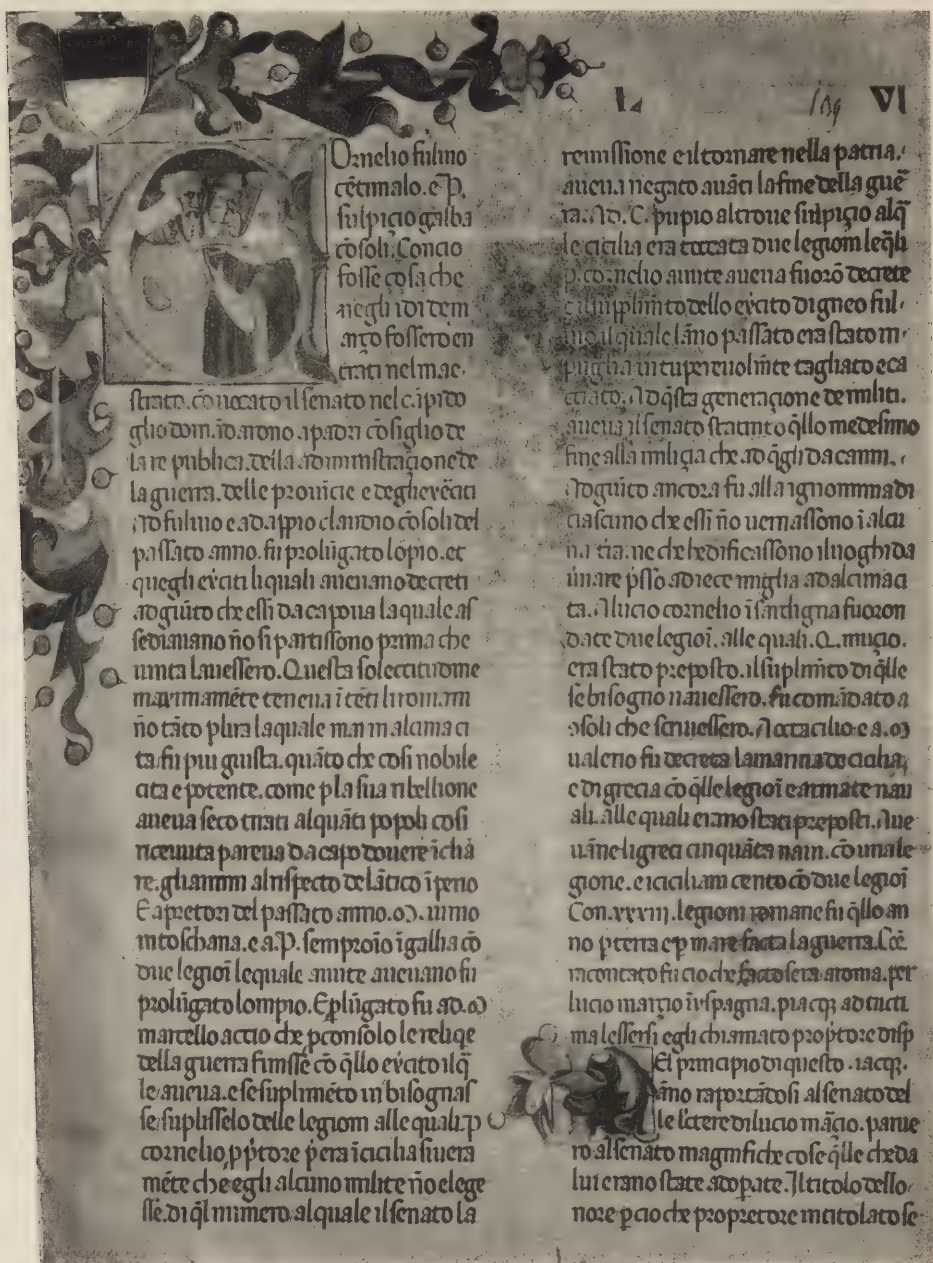 L 189 VI
Ornelio fuluio
cētimalo. e P.
sulpiçio galba
cōsoli. Concio
fosse cosa che
negli idi dem
arço fossero en
trati nel mae.
strato. cōuocato il senato nel c.ipido
glio dom.
la re publica. della administraçione de
la guerra. delle prouīcie e degli exerciti
Ad fuluio e ad appio claudio cōsoli del
passato anno. fu prolūgato lopio. et
quegli exerciti li quali aueuano decreti
adgiūto che essi da capoua la quale as
sediauano nō si partissono prima che
uinta lauessero. Questa solecitudine
maximamēte teneua ītēti li romani
nō tāto p lira la quale mai in alcuna ci
ta fu piu giusta. quāto che cosi nobile
cita e potente. come p la sua ribellione
aueua seco tirati alquāti popoli cosi
riceuuta pareua da capo douere īchia
re. gli animi al rispecto de lātico īperio
E a pretori del passato anno. M. iunio
in toschana. e a. P. sempronio ī gallia cō
due legioī le quale auāte aueuano fu
prolūgato lompio. E plūgato fu ad. M
marcello accio che pconsolo le reliqe
della guerra finisse cō qllo exercito il q
le aueua. e se suplimēto in bisognas
se, suplisselo delle legioni alle quali. p
cornelio, pptore pera ī cicilia si uera
mēte che egli alcuno milite nō elege
sse. di ql numero al quale il senato la
remissione e il tornare nella patria.
aueua negato auāti la fine della gue
ra. Ad. C. pupio altroue sulpiçio al q
le cicilia era toccata due legioni le qli
p. cornelio auute aueua fuorō decrete
e il suplimto. dello exercito di gneo ful.
uio il quale lāno passato era stato in.
puglia uitupereuolmēte tagliato e ca
cciato. Ad qsta generaçione de militi.
aueua il senato statuito qllo medesimo
fine alla miliçia che ad qgli da canni.
Adgiūto ancora fu alla ignominia di
ciascuno che essi nō uernassono ī alcu
na tra. ne che hedificassono i luoghi da
uernare psso a diece miglia ad alcuna ci
ta. A lucio cornelio ī sardigna fuoron
date due legioī. alle quali. Q. muçio.
era stato preposto. il suplimto di qlle
se bisogno nauessero. fu comādato a
ɔsoli che scriuessero. A octacilio e a. M
ualerio fu decreta la marina de cicilia,
e di grecia cō qlle legioī e armate naui
ali. alle quali erano stati preposti. Aue
uāne li greci cinquāta naui. cō una le
gione. e i ciciliani cento cō due legioī
Con. xxxiij. legioni romane fu qllo an
no p terra e p mare facta la guerra.
racontato fu cio che facto sera a roma. per
lucio março ī yspagna. piacq, ad tucti
ma lessersi egli chiamato proptore disp
El principio di questo. iacq.
āno raportādosi al senato del
le lectere di lucio março. parue
ro al senato magnifiche cose qlle che da
lui erano state adoprate. Il titolo dello.
nore p cio che propretore intitolato se.